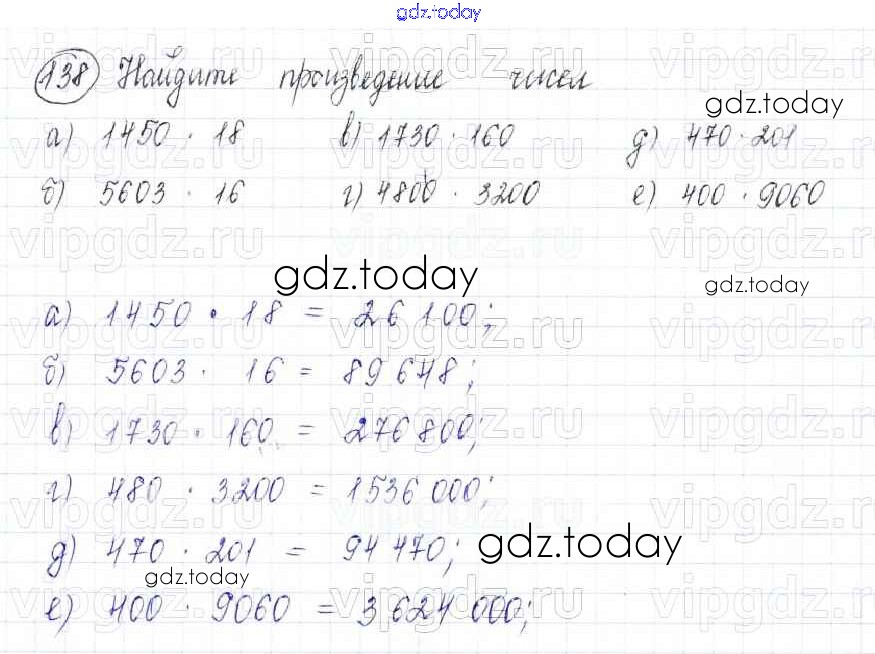 gdz.today
138 Найдите произведение чисел
gdz.today
а) 1450 · 18 в) 1730 · 160 д) 470 · 201
б) 5603 · 16 г) 4800 · 3200 е) 400 · 9060
gdz.today
gdz.today
а) 1450 · 18 = 26 100;
б) 5603 · 16 = 89 648;
в) 1730 · 160 = 276 800;
г) 480 · 3200 = 1536 000;
д) 470 · 201 = 94 470;
gdz.today
gdz.today
е) 400 · 9060 = 3 624 000;
vipgdz.ru